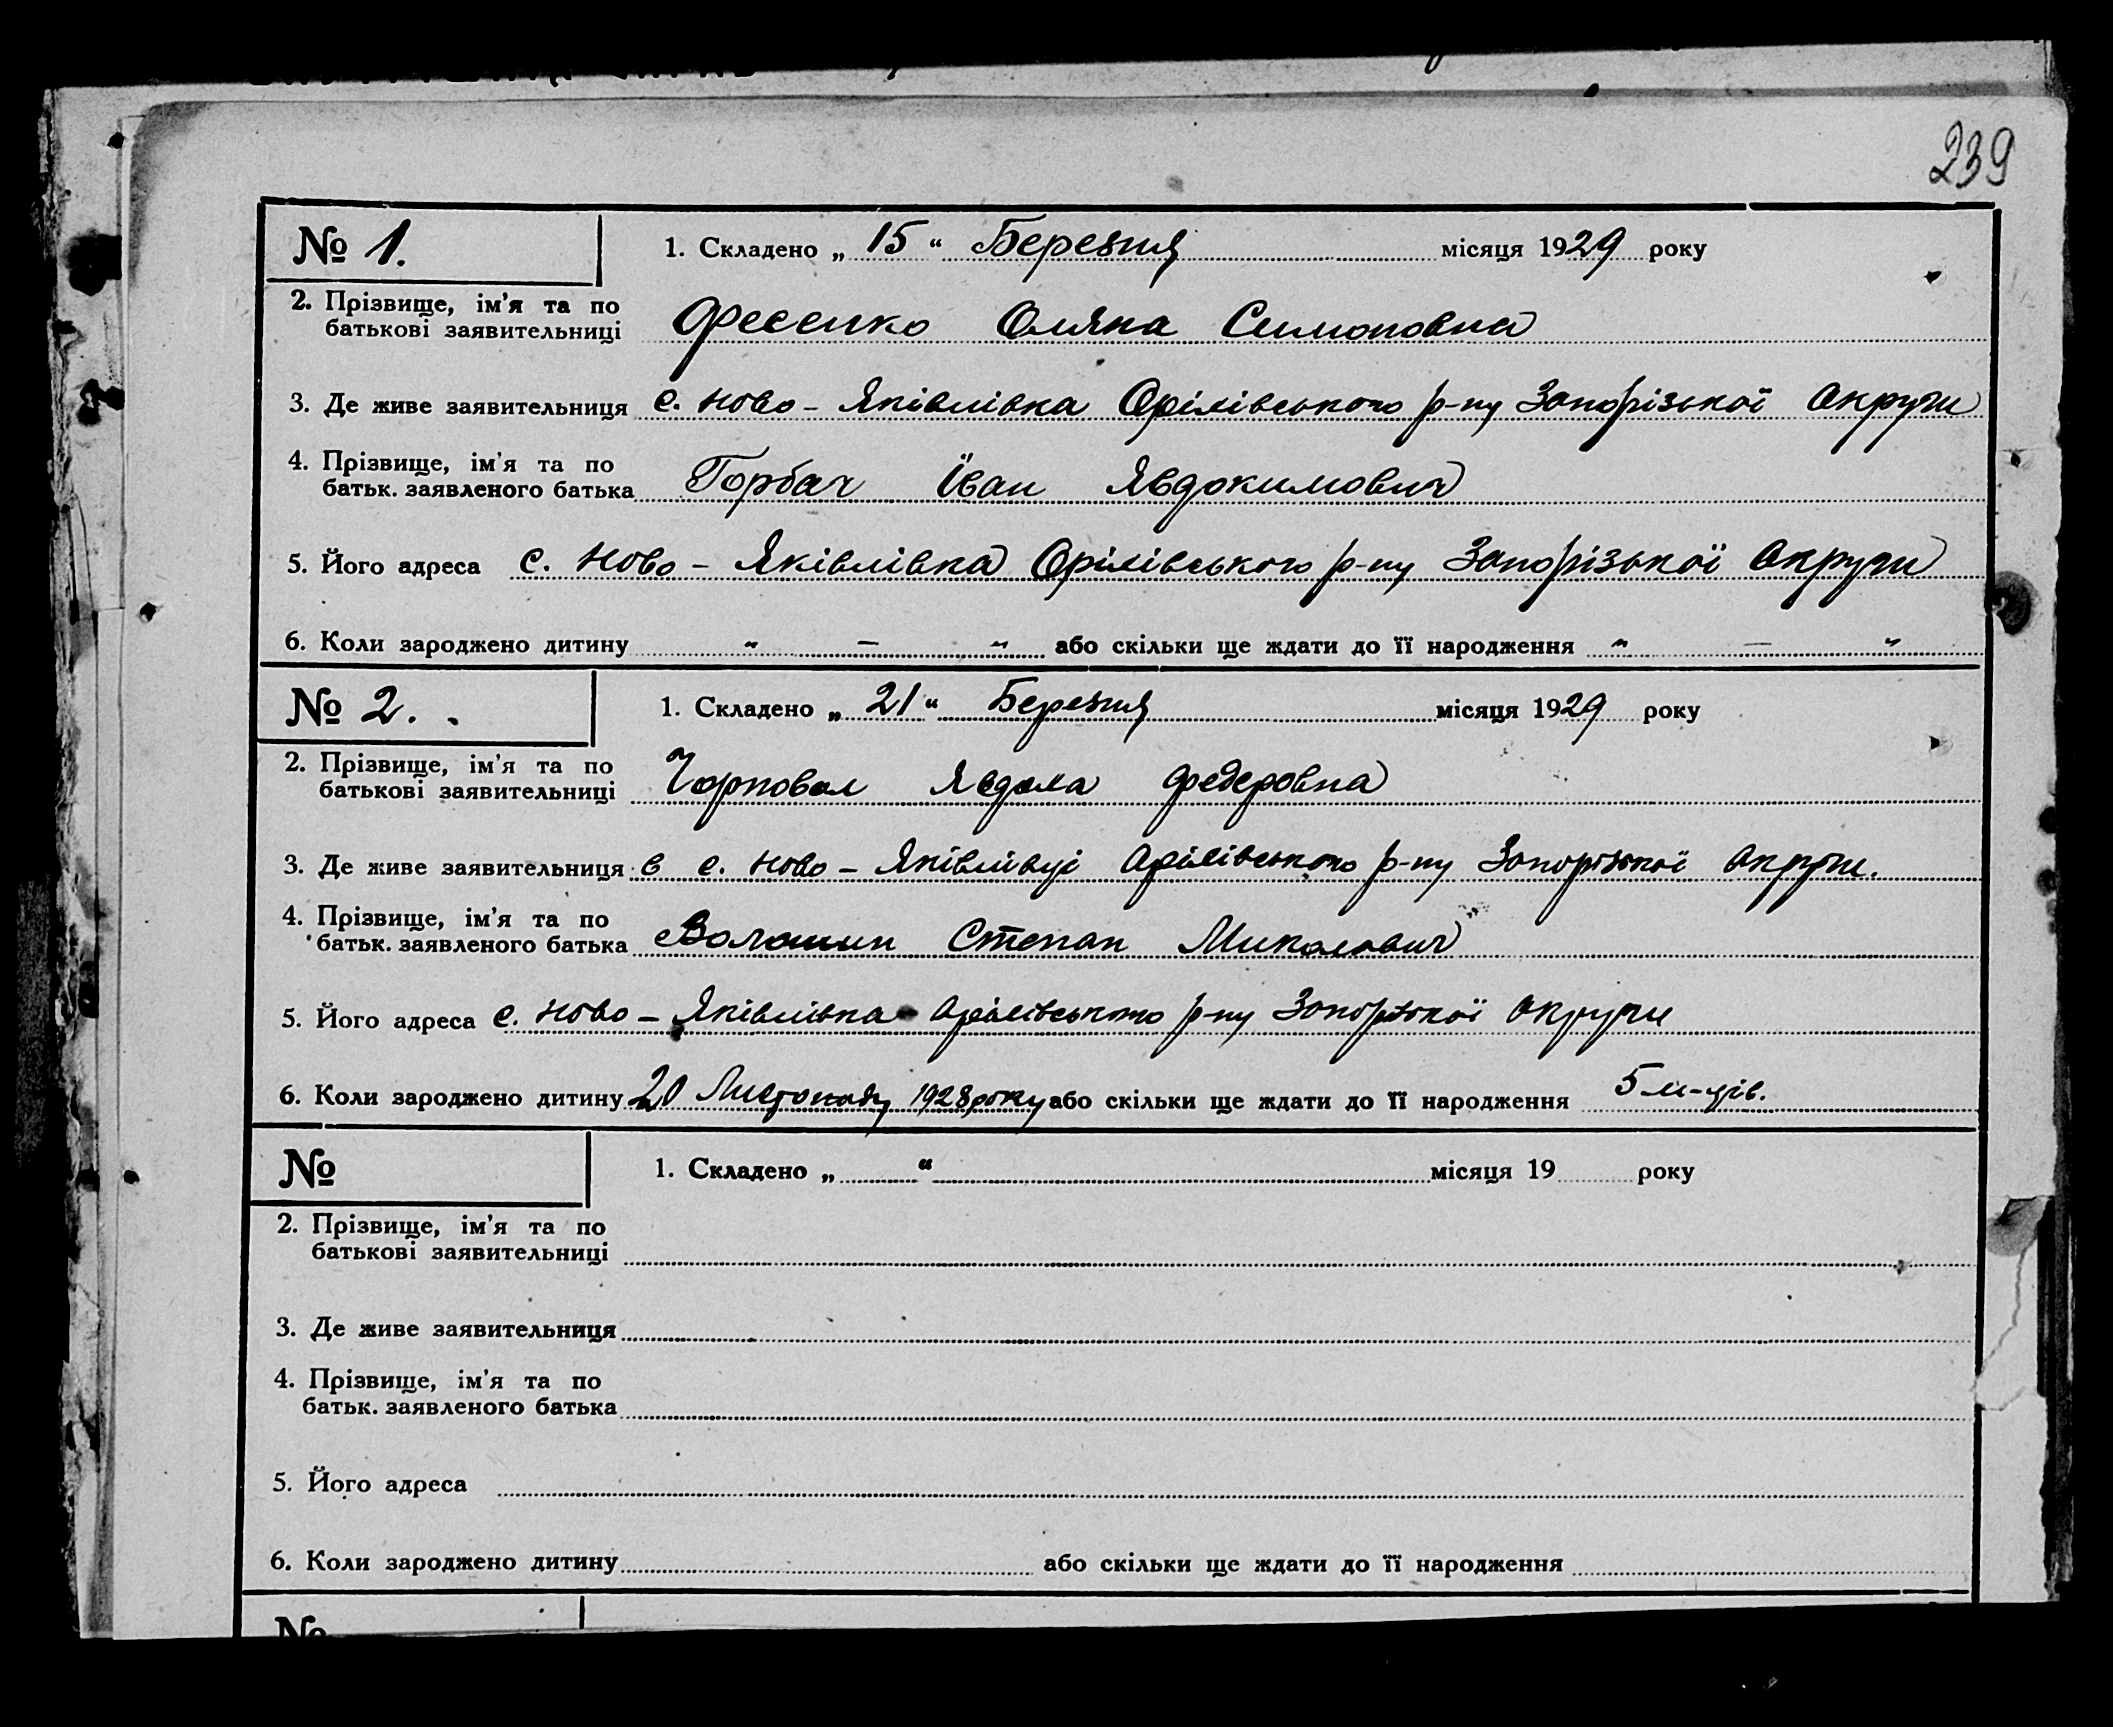 239
№ 1.
1. Складено „ 15 “ Березня місяця 1929 року
2. Прізвище, ім'я та по
батькові заявительниці Фесенко Оляна Симоновна
3. Де живе заявительниця с. Ново - Яківлівка Оріхівського р-ну Запорізької Округи
4. Прізвище, ім'я та по
батьк. заявленого батька Горбач Іван Явдокимович
5. Його адреса с. Ново - Яківлівка Оріхівського р-ну Запорізької Округи
6. Коли зароджено дитину " — " або скільки ще ждати до її народження " — "
№ 2.
1. Складено „ 21 “ Березня місяця 1929 року
2. Прізвище, ім'я та по
батькові заявительниці Явдоха Федеровна
3. Де живе заявительниця в с. Ново - Яківлівці Оріхівського р-ну Запорізької Округи.
4. Прізвище, ім'я та по
батьк. заявленого батька Волошин Степан Миколович
5. Його адреса с. Ново - Яківлівка Оріхівського р-ну Запорізької Округи
6. Коли зароджено дитину 20 Листопаду 1928 року або скільки ще ждати до її народження 5 м-ців.
№
1. Складено „ “ місяця 19 року
2. Прізвище, ім'я та по
батькові заявительниці
3. Де живе заявительниця
4. Прізвище, ім'я та по
батьк. заявленого батька
5. Його адреса
6. Коли зароджено дитину або скільки ще ждати до її народження
№